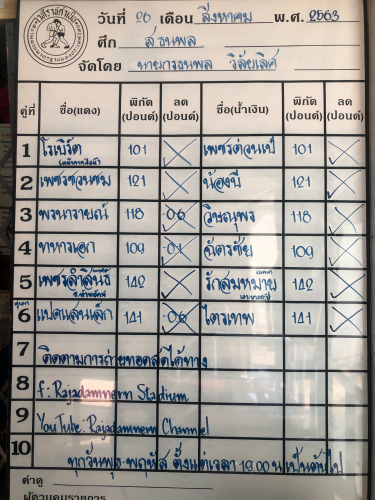 วันที่ 26 เดือน สิงหาคม พ.ศ. 2563
ศึก สจนพล
จัดโดย นายกรธนพล วิลัยเลิศ
คู่ที่ ชื่อ(แดง) พิกัด (ปอนด์) ลด (ปอนด์) ชื่อ(น้ำเงิน) พิกัด (ปอนด์) ลด (ปอนด์)
1 โรเบิร์ต 101 เพชรต่วนเป๋ 101
2 เพชรชวนชม 121 น้องบี 121
3 พรนารายณ์ 118 06 วิษณุพร 118
4 ทหารเอก 109 01 ฉัตรชัย 109
5 เพชรลำสินธุ์ 142 รักสมหมาย 142
คู่เอก
6 แปดแสนเล็ก 141 06 ไตรเทพ 141
7 ติดตามการถ่ายทอดสดได้ทาง
8 f: Rajadamnern Stadium
9 YouTube: Rajadamnern Channel
10 ทุกวันพุธ-พฤหัส ตั้งแต่เวลา 19.00 น เป็นต้นไป
ค่าดู
ผู้ควบคุมรายการ